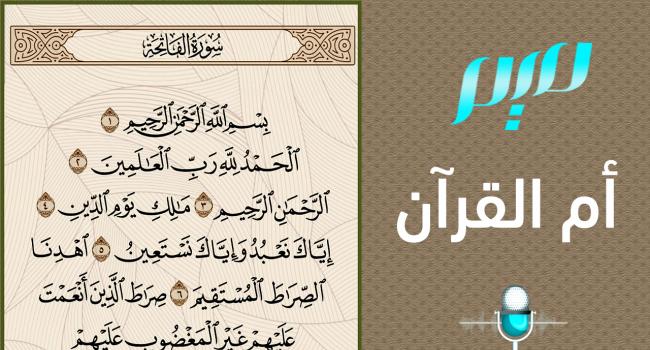 سُورَةُ الفَاتِحَةِ
بِسْمِ ٱللَّهِ ٱلرَّحْمَٰنِ ٱلرَّحِيمِ ١
ٱلْحَمْدُ لِلَّهِ رَبِّ ٱلْعَٰلَمِينَ ٢
ٱلرَّحْمَٰنِ ٱلرَّحِيمِ ٣ مَٰلِكِ يَوْمِ ٱلدِّينِ ٤
إِيَّاكَ نَعْبُدُ وَإِيَّاكَ نَسْتَعِينُ ٥ ٱهْدِنَا
ٱلصِّرَٰطَ ٱلْمُسْتَقِيمَ ٦ صِرَٰطَ ٱلَّذِينَ أَنْعَمْتَ
عَلَيْهِمْ غَيْرِ ٱلْمَغْضُوبِ عَلَيْهِمْ
ميم
أم القرآن